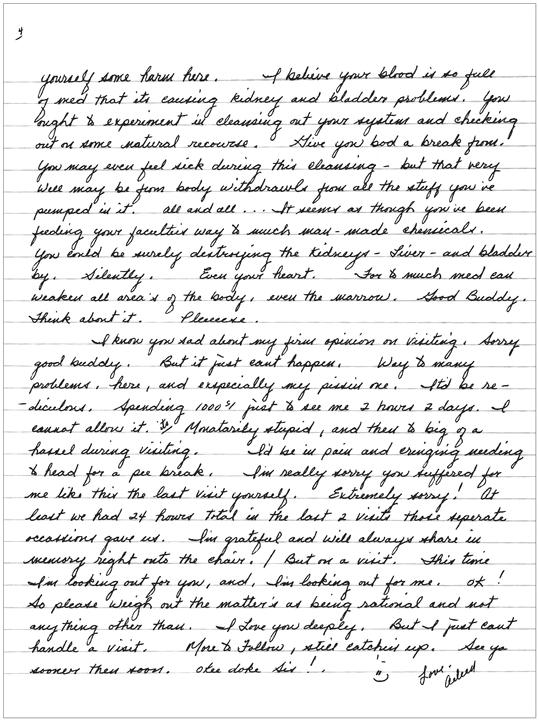 4
yourself some harm here. I believe your blood is so full
of med that its causing kidney and bladder problems. You
ought to experiment in cleansing out your system and checking
out on some natural recourse. Give you bod a break from.
You may even feel sick during this cleansing - but that very
well may be from body withdrawls from all the stuff you've
pumped in it. all and all ... It seems as though you've been
feeding your facultis way to much man-made chemicals.
You could be surely destroying the kidneys - Liver - and bladder
by. Silently. Even your heart. For to much med can
weaken all area's of the body, even the marrow. Good Buddy.
Think about it. Pleeeese.
I know you sad about my firm opinion on visiting. Sorry
good buddy. But it just cant happen. Way to many
problems, here, and exspecially my pissin one. It'd be re-
-diculous. Spending 1000$! just to see me 2 hours 2 days. I
cannot allow it. Monatarily stupid, and then to big of a
hassel during visiting. I'd be in pain and cringing needing
to head for a pee break. I'm really sorry you suffered for
me like this the last visit yourself. Extremely sorry! At
least we had 24 hours total in the last 2 visits those seperate
occassions gave us. I'm grateful and will always share in
memory right onto the chair. / But on a visit. This time
I'm looking out for you, and, I'm looking out for me. ok!
So please weigh out the matter's as being rational and not
anything other than. I Love you deeply. But I just cant
handle a visit. More to Follow, still catchin up. See ya
sooner then soon. Okee doke Sis!. Love.